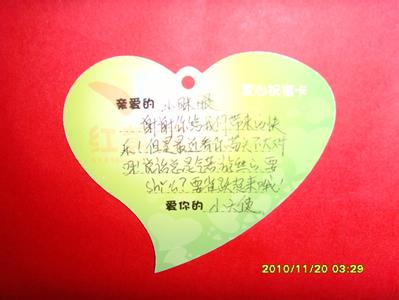 爱心祝福卡
亲爱的 小眯眼
谢谢你给我们带来的快
乐！但是最近看你苗头不大对
呀！说话总是气若游丝 要
shi么？要雄起来哦！
爱你的 小天使
红
2010/11/20 03:29